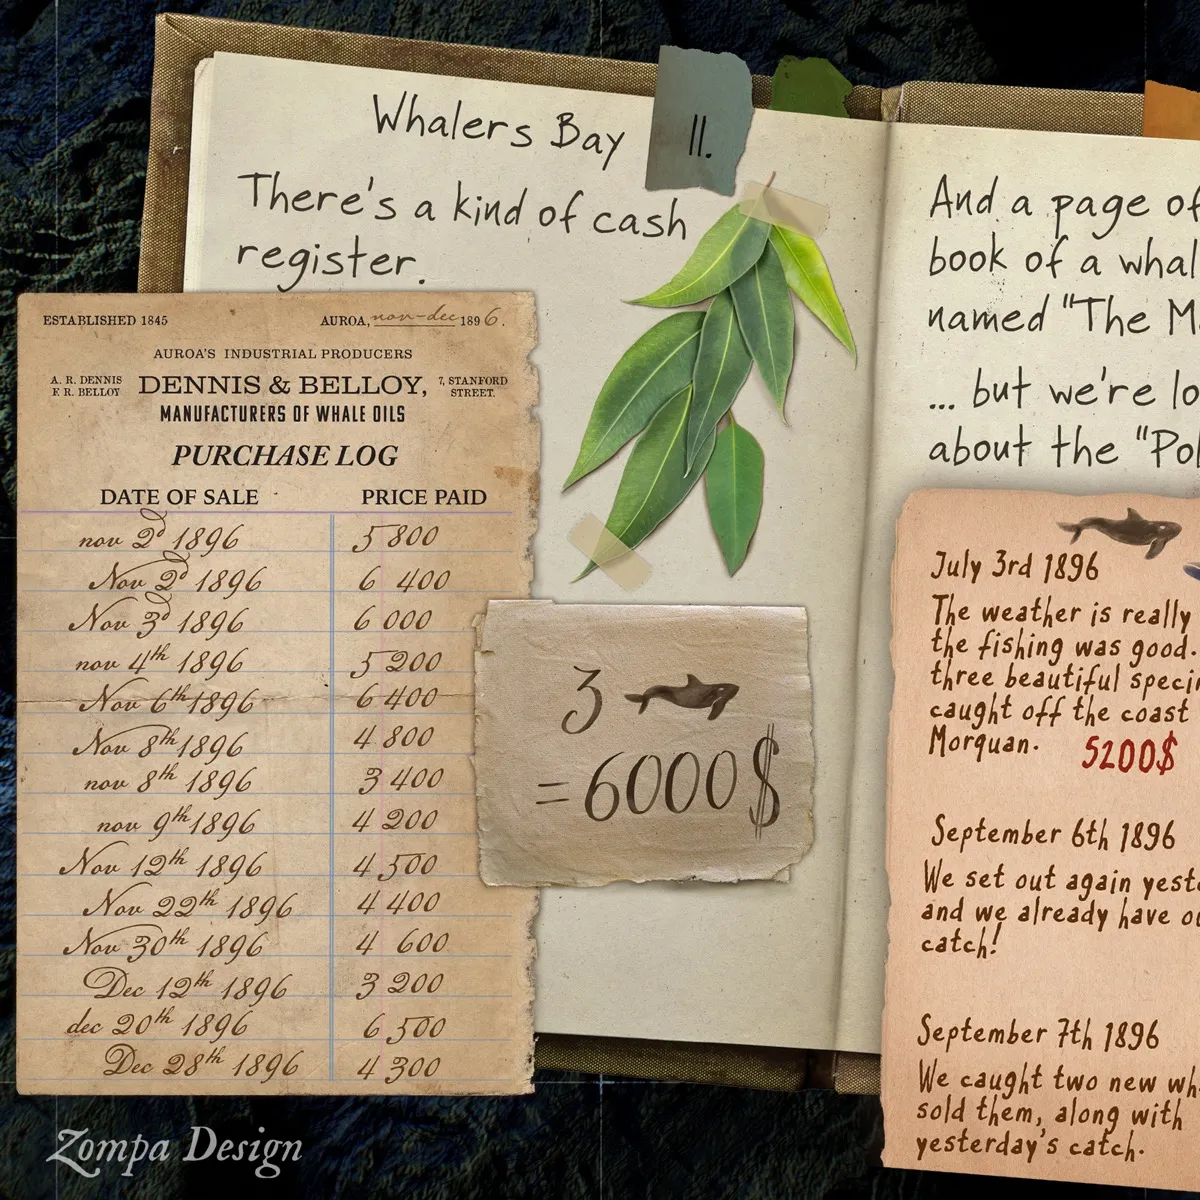 Whalers Bay
11.
There's a kind of cash
register.
ESTABLISHED 1845
AUROA, nov-dec 1896.
AUROA'S INDUSTRIAL PRODUCERS
A. R. DENNIS
F. R. BELLOY
DENNIS & BELLOY,
7, STANFORD
STREET.
MANUFACTURERS OF WHALE OILS
PURCHASE LOG
DATE OF SALE PRICE PAID
nov 2d 1896 5 800
Nov 2d 1896 6 400
Nov 3d 1896 6 000
nov 4th 1896 5 200
Nov 6th 1896 6 400
Nov 8th 1896 4 800
nov 8th 1896 3 400
nov 9th 1896 4 200
Nov 12th 1896 4 500
Nov 22th 1896 4 400
Nov 30th 1896 4 600
Dec 12th 1896 3 200
dec 20th 1896 6 500
Dec 28th 1896 4 300
3
= 6000$
And a page of
book of a whal
named "The M
... but we're lo
about the "Pol
July 3rd 1896
The weather is really
the fishing was good.
three beautiful speci
caught off the coast
Morquan. 5200$
September 6th 1896
We set out again yest
and we already have o
catch!
September 7th 1896
We caught two new wh
sold them, along with
yesterday's catch.
Zompa Design